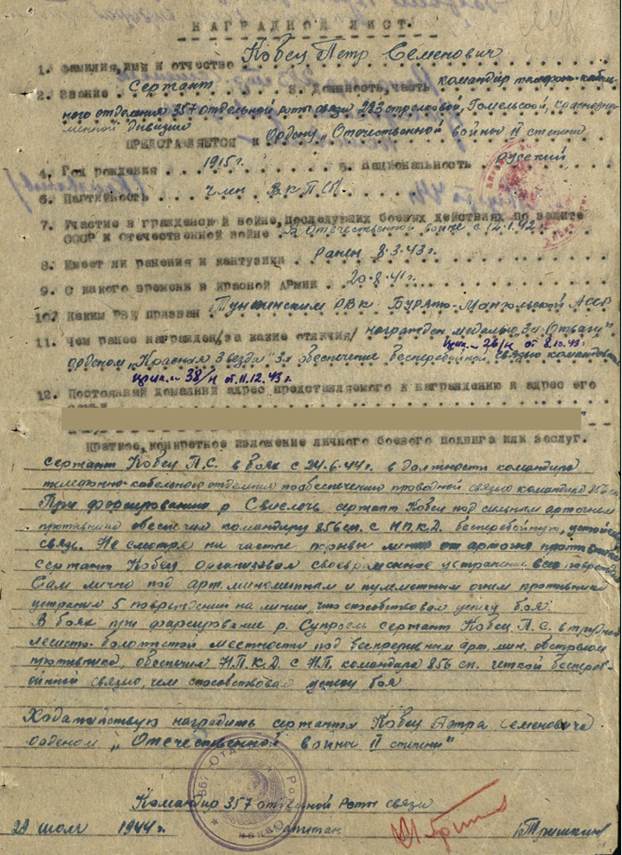 НАГРАДНОЙ ЛИСТ.
1. Фамилия, имя и отчество Кобец Петр Семенович
2. Звание Сержант 3. Должность, часть командир телефон.-кабель-
ного отделения 357 отдельной роты связи 283 стрелковой, Гомельской, Краснозна-
менной дивизии
ПРЕДСТАВЛЯЕТСЯ к Ордену „Отечественной войны II степени
4. Год рождения 1915г. 5. Национальность русский
6. Партийность член ВКП(б).
7. Участие в гражданской войне, последующих боевых действиях по защите
СССР и отечественной войне в Отечественной войне с 12.1.42
8. Имеет ли ранения и контузии ранен 8.3.43г.
9. С какого времени в Красной Армии 20.8.41г.
10. Каким РВК призван Тункинским РВК Бурято-Монгольской АССР
11. Чем ранее награжден /за какие отличия/ награжден медалью „За Отвагу"
орденом „Красная Звезда" за обеспечение бесперебойной связью командования
прик. № 38/н от 11.12.43г.
12. Постоянный домашний адрес представляемого к награждению и адрес его
Краткое, конкретное изложение личного боевого подвига или заслуг.
сержант Кобец П.С. в боях с 24.6.44г. в должности командира
телефонно-кабельного отделения по обеспечению проводной связью командира 856 сп.
При форсировании р. Свислочь сержант Кобец под сильным артогнем
противника обеспечил командиру 856 сп. с Н.П.К.Д. бесперебойную, устойчив.
связь. Не смотря на частые порывы линии от артогня противника
сержант Кобец организовал своевременное устранение всех повреждений
Сам лично под арт. минометным и пулеметным огнем противника
устранил 5 повреждений на линии, что способствовало успеху боя.
В боях при форсирование р. Супрасль сержант Кобец П.С. в трудной
лесисто-болотистой местности под беспрерывным арт. мин. обстрелом
противника, обеспечил Н.П.К.Д. с Н.П. командира 856 сп. четкой беспере-
бойной связью, чем способствовал успеху боя
Ходатайствую наградить сержанта Кобец Петра Семеновича
орденом „Отечественной войны II степени"
Командир 357 отдельной Роты связи
29 июля 1944г. Капитан